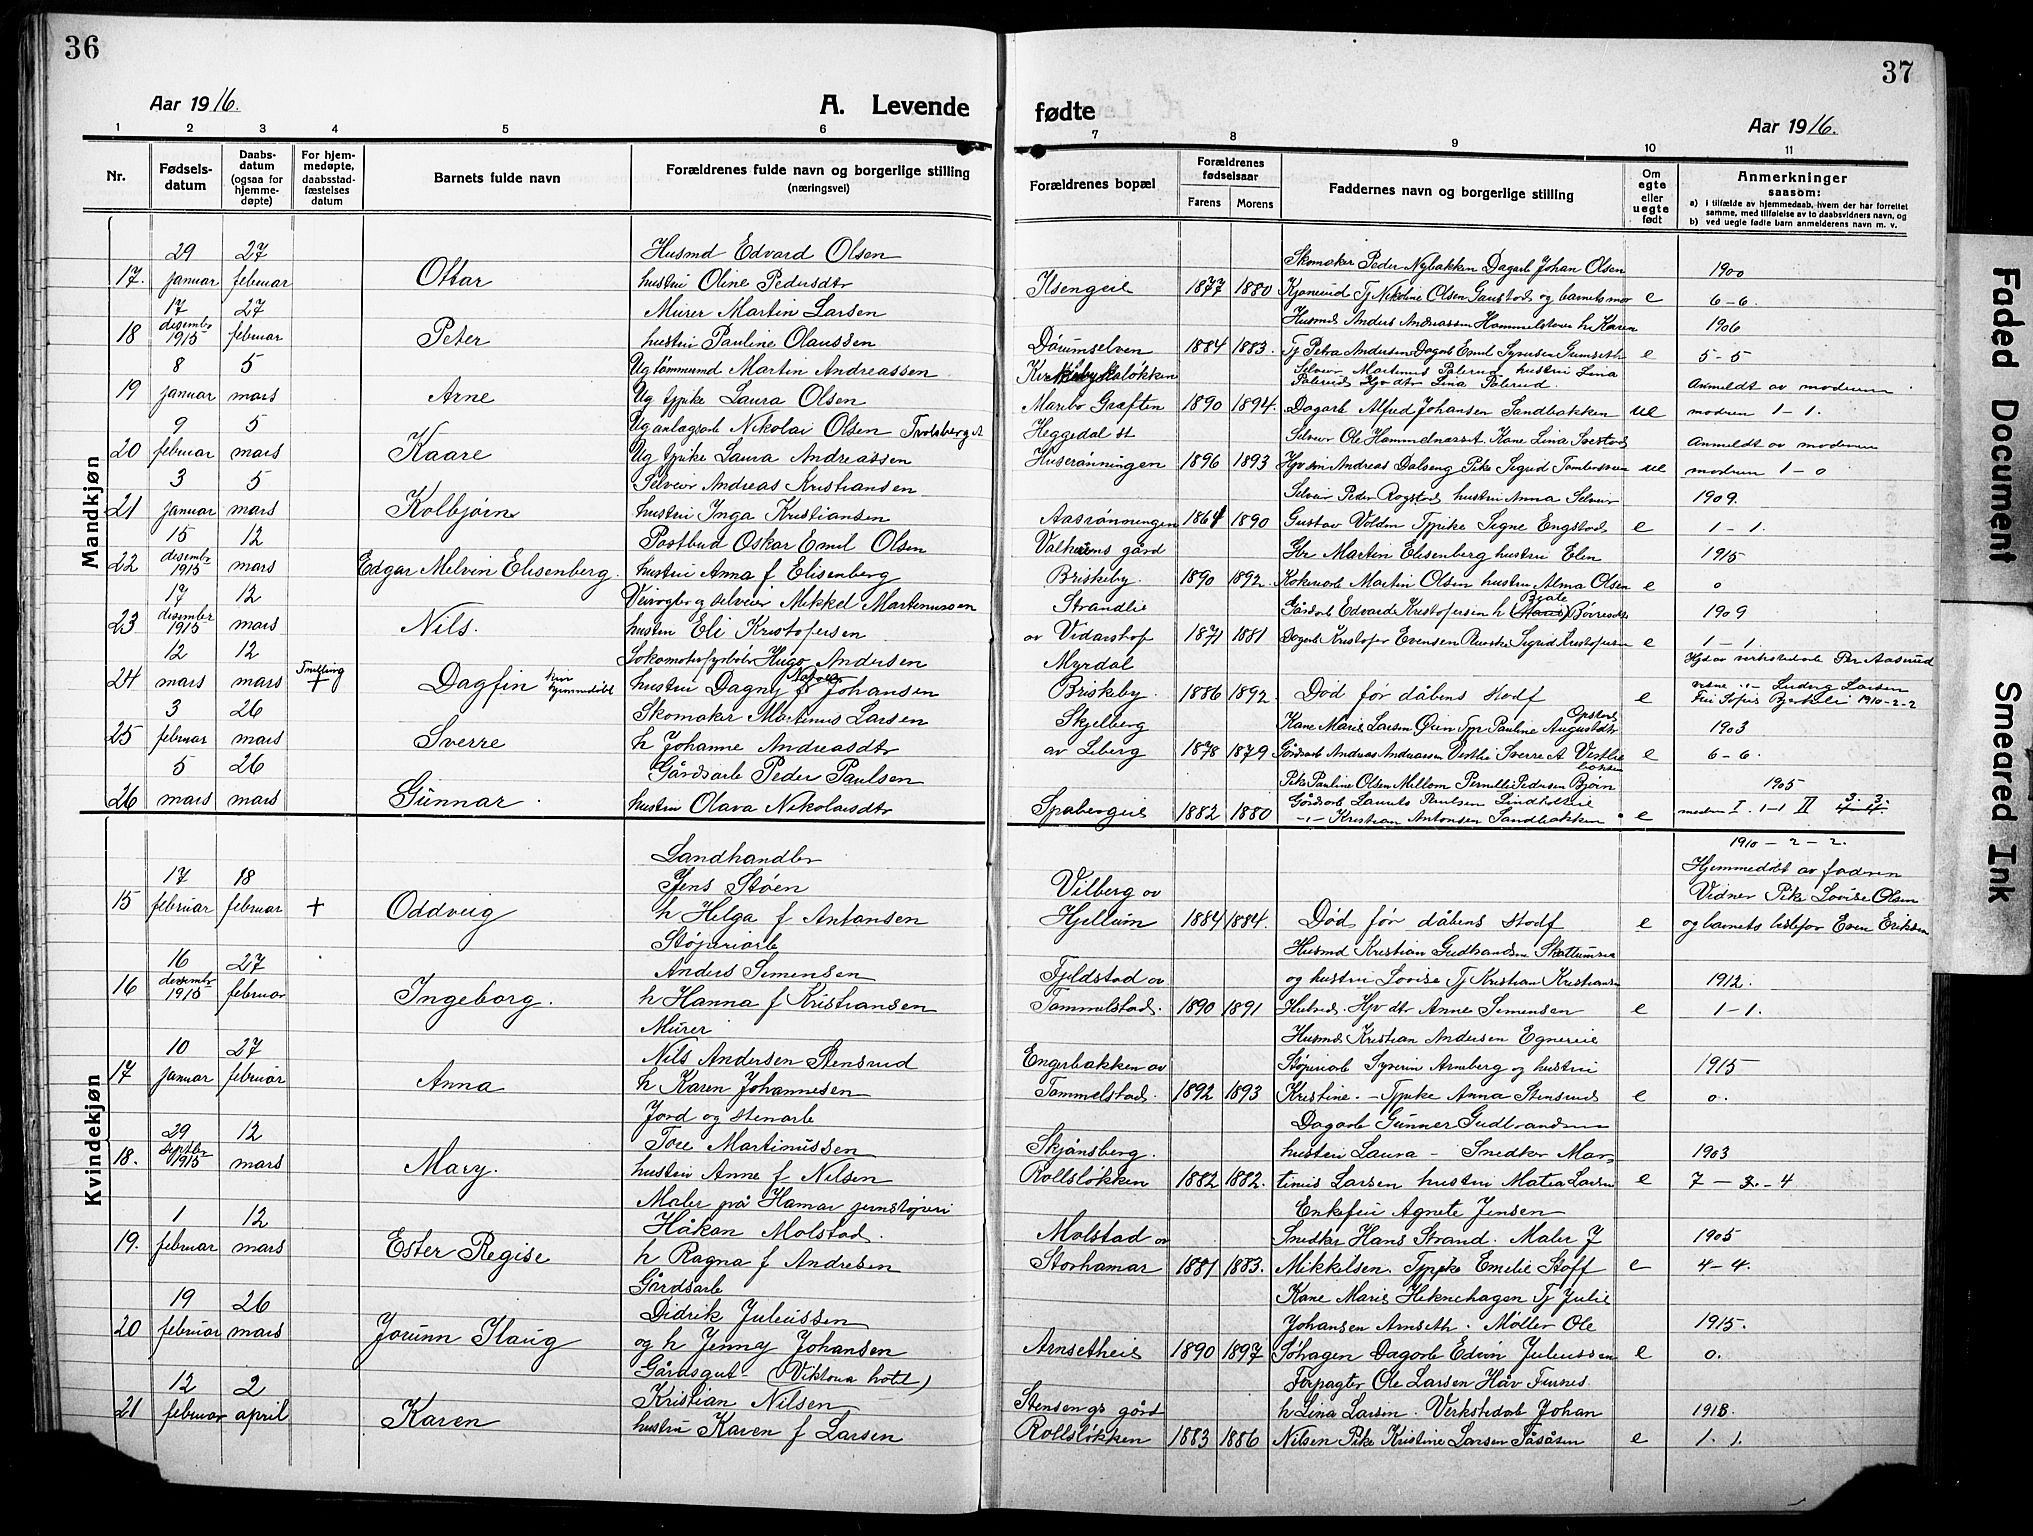 36
Aar 1916.
A. Levende
1 2 3 4 5 6
Nr. Fødsels-datum Daabs-datum (ogsaa for hjemme-døpte) For hjem-medøpte, daabsstad-fæstelses datum Barnets fulde navn Forældrenes fulde navn og borgerlige stilling (næringsvei)
Mandkjøn
29 27 Husmd Edvard Olsen
17. januar februar Ottar hustru Oline Pedersdtr
17 27 Murer Martin Larsen
18 desembr 1915 februar Peter hustru Pauline Olaussen
8 5 Ug tømmermd Martin Andreassen
19 januar mars Arne Ug tjpike Laura Olsen
9 5 Ug anlagsarb Nikolai Olsen
20 februar mars Kaare Ug tjpike Laura Andreassen
3 5 Selveier Andreas Kristiansen
21 januar mars Kolbjørn hustru Inga Kristiansen
15 12 Postbud Oskar Emil Olsen
22 desembr 1915 mars Edgar Melvin Elisenberg. hustru Anna f Elisenberg
17 12 Veivogter og selveier Mikkel Martinussen
23 desember 1915 mars Nils. hustru Eli Kristofersen
12 12 Lokomotivfyrbøter Hugo Andersen
24 mars mars Tvilling + Dagfin kun hjemmedøbt hustru Dagny f Johansen
3 26 Skomaker Martinus Larsen
25 februar mars Sverre h Johanne Andreasdtr
5 26 Gårdsarb Peder Paulsen
26 mars mars Gunnar. hustru Olava Nikolaisdtr
Kvindekjøn
Landhandler
17 18 Jens Støen
15 februar februar + Oddveig h Helga f Antonsen
Støperiarb
16 27 Anders Simensen
16 desembr 1915 februar Ingeborg. h Hanna f Kristiansen
Murer
10 27 Nils Andersen Stensrud
17 januar februar Anna h Karen Johannesen
Jord og stenarb
29 12 Tore Martinussen
18. septbr 1915 mars Mary. hustru Anne f Nilsen
Maler på Hamar jernstøperi
1 12 Håkan Molstad.
19. februar mars Ester Regise h Ragna f Andresen
Gårdsarb
19 26 Didrik Juliussen
20 februar mars Jorunn Haug og h Jenny Johansen
Gårdsgut (Viktoria hotel)
12 2 Kristian Nilsen
21 februar april Karen hustru Karen f Larsen
37
fødte
Aar 1916.
7 8 9 10 11
Forældrenes bopæl Forældrenes fødselsaar Farens Morens Faddernes navn og borgerlige stilling Om egte eller uegte født Anmerkninger saasom:
a) i tilfælde av hjemmedaab, hvem der har forrettet samme, med tilføielse av to daabsvidners navn, og
b) ved uegte fødte barn anmelderens navn m. v.
Skomaker Peder Nybakken Dagarb Johan Olsen 1900
Ilsengeie 1877 1880 Tj Nikoline Olsen Gaustad og barnets mor e 6-6.
Husmd Anders Andreassen Hammelstuen h Karen 1906
Dørumselven 1884 1883. Tj Petra Andersen Dagarb Emil e 5-5
Selveier Martinus Palerud hustru Lina
Palerud Lina Palerud. Anmeldt av moderen
Maribo Grøften 1890 1894. Dagarb Alfred Johansen Sandbakken ue modern 1-1.
Heggedal Selveier Ole Kone Lina Anmeldt av moderen
Huserønningen 1896 1893 Andreas Dalseng Pike Sigrid ue modern 1-0
Selveier Peder Rogstad hustru Anna Selveier 1909.
Aasrønningen 1864 1890 Gustav Volden Tjpike Signe Engstad e 1-1.
Valhems gård Martin Elisenberg hustru Elen 1915
Briskeby. 1890 1892. Kokerarb Martin Olsen hustru Alma Olsen e 0
Strandlie Gårdarb Edvard Kristofersen h Beate 1909
av Vidarshof 1871 1881 Dagarb Kristofer Evensen Sigrid Kristofersen e 1-1.
Myrdal verkstedarb Per Aaserud
Briskeby. 1886 1892. Død før dåbens stadf e Ludvig Larsen
Skjelberg Kone Maria Larsen Pauline Augustdtr 1903
av Leberg 1878 1879 Gårdsarb Andreas Andreasen Vestlie Sverre A Vestlie e 6-6.
Pike Pauline Olsen Pernille Pedersen Bjørn 1905
Spabergeie 1882 1880 Gårdsarb Laurits Paulsen
Kristian Antonsen Sandbakken e
1910-2-2.
Hjemmedøbt av faderen
Vilberg av Vidner Pike Lovise Olsen
Hjellum 1884 1884. Død før dåbens stadf e og barnets Even Eriksen
Husmd Kristian Gudbrandsen
Fjeldstad av og hustru Lovise Tj Kristian Kristiansen 1912.
Tommelstad. 1890 1891 Anne Simensen e 1-1.
Husmd Kristian Andersen Egnereie
Engerbakken av Støperiarb Syverin Arneberg og hustru 1915
Tommelstad. 1892 1893 Kristine. - Tjpike Anna Stensrud e 0.
Dagarb Gunner Gudbrandsen
Skjønsberg. hustru Laura - Snedker Mar- 1903
Rollsløkken 1882 1882. tinus Larsen hustru Matea Larsen e 7-3.-4
Enkefru Agnete Jensen
Molstad av Snedker Hans Strand. Maler J 1905
Storhamar 1881 1883. Mikkelsen. Tjpike Emelie Stoff e 4-4.
Kone Maria Heknehagen Tj Julie
Johansen Arnseth. Møller Ole 1915.
Arnsetheie 1890 1897 Søhagen Dagarb Edvin Juliussen e 0.
Forpagter Ole Larsen Håv Furnes.
Stensengs gård h Lina Larsen. Verkstedarb Johan 1913.
Rollsløkken 1883 1886 Nilsen Pike Kristine Larsen Såsåsen e 1.1.
Faded Document
Smeared Ink